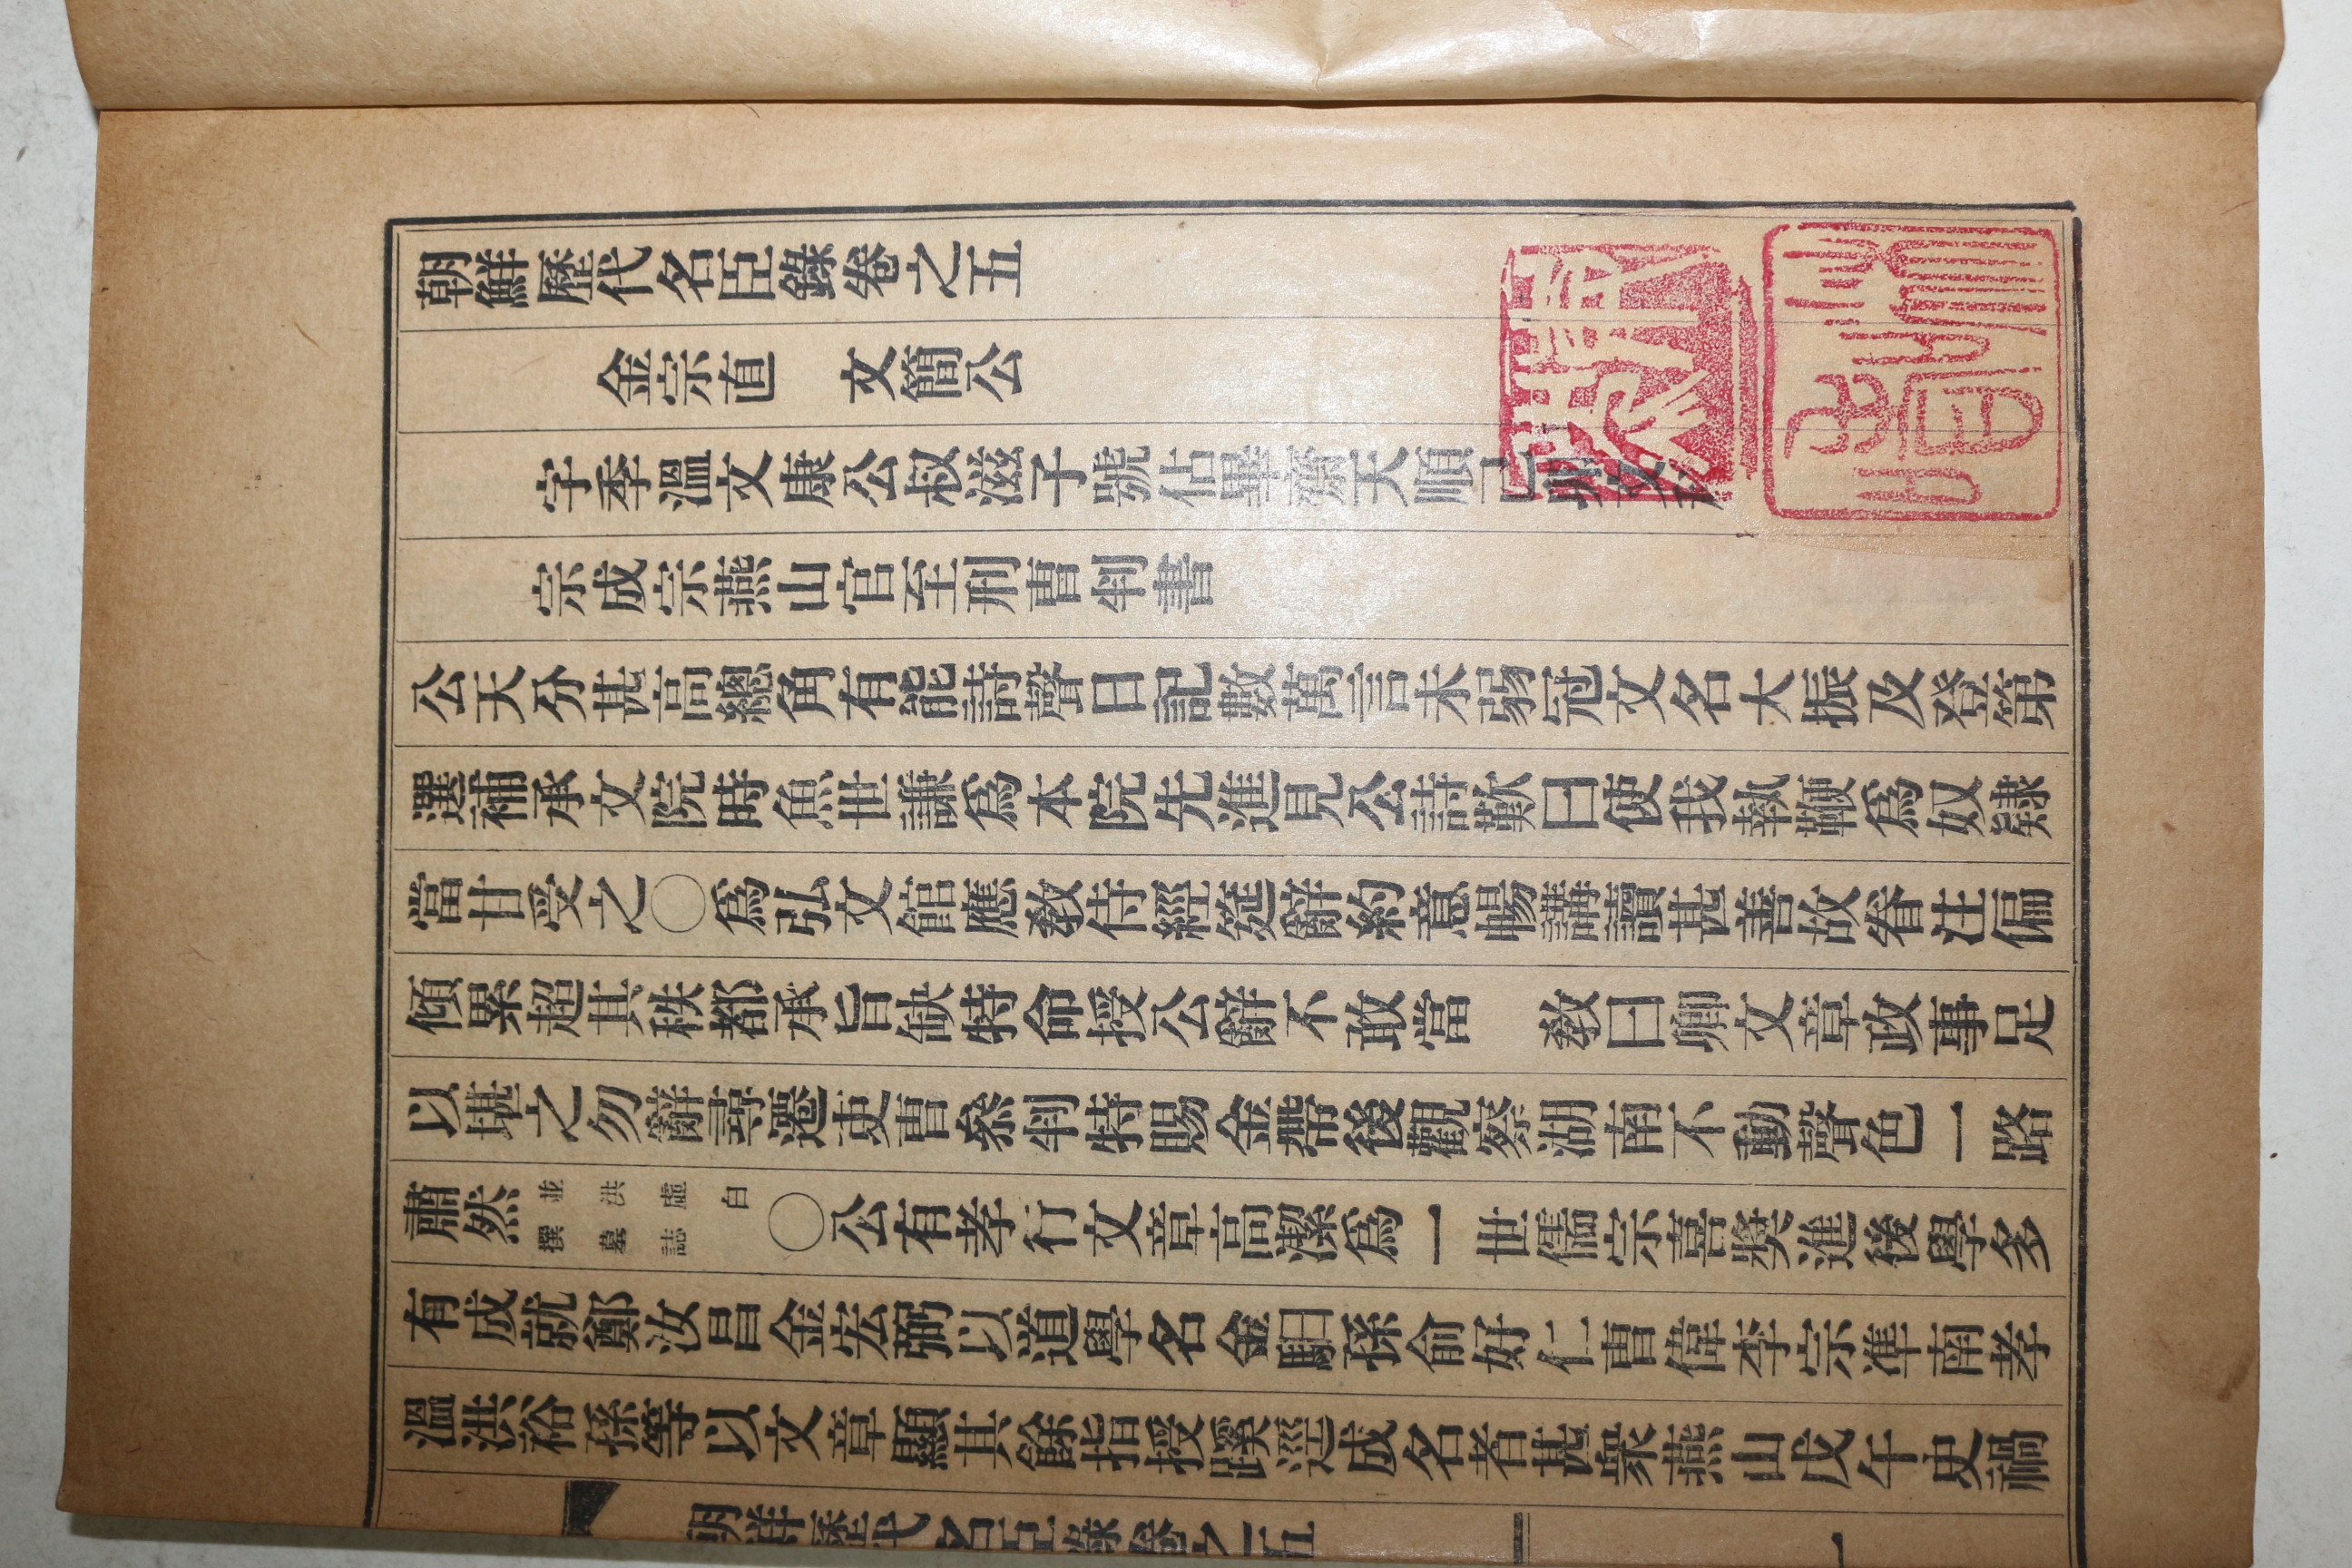 朝鮮歷代名臣錄卷之五
金宗直 文簡公
字季溫文康公叔滋子號佔畢齋天順己卯文科
宗成宗燕山官至刑曹判書
公天分甚高總角有能詩聲日記數萬言未弱冠文名大振及登第
選補承文院時魚世謙爲本院先進見公詩歎曰使我執鞭爲奴隸
當甘受之〇爲弘文館應敎侍經筵辭約意暢講讀甚善故眷注偏
傾累超其秩都承旨缺特命授公辭不敢當 敎曰卿文章政事足
以堪之勿辭尋遷吏曹叅判特賜金帶後觀察湖南不動聲色一路
肅然並洪虛白撰墓誌〇公有孝行文章高潔爲一世儒宗喜奬進後學多
有成就鄭汝昌金宏弼以道學名金馹孫俞好仁曹偉李宗準南孝
溫洪裕孫等以文章顯其餘指授蹊逕成名者甚衆燕山戊午史禍
朝鮮歷代名臣錄卷之五
一